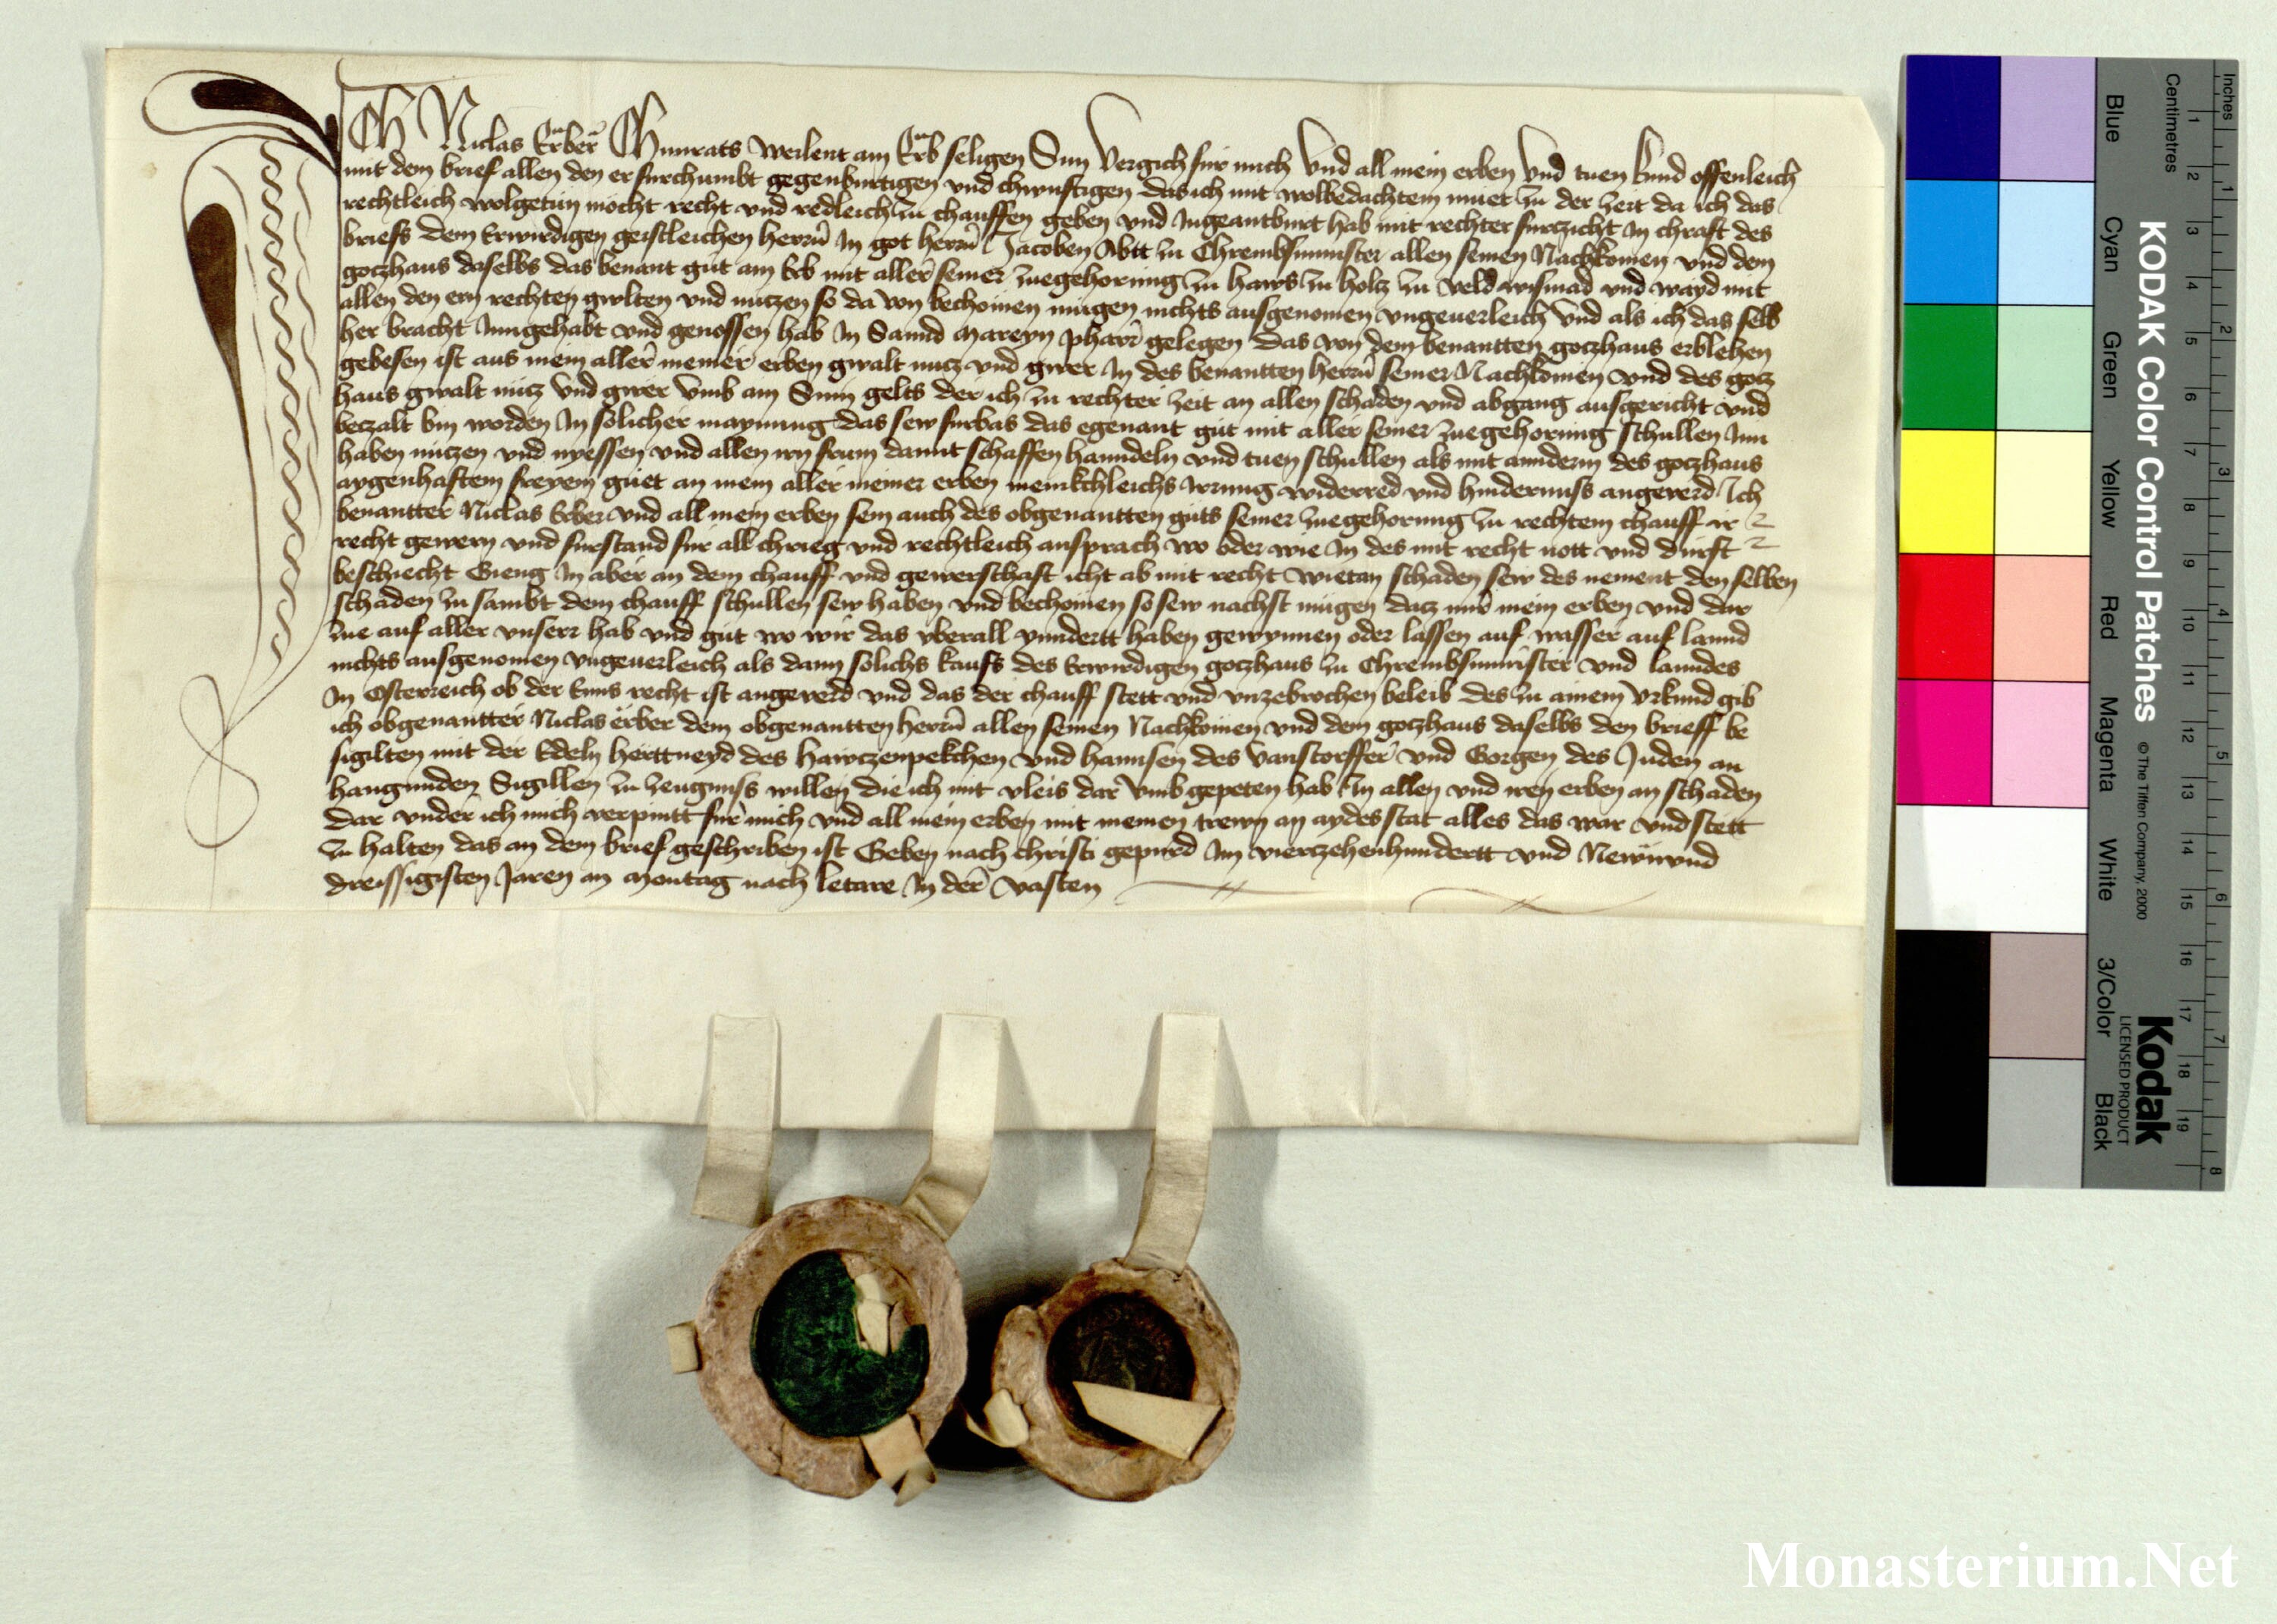 Ich Niclas Erber Chunrats Weilent am Erb seligen Sun Vergich fur mich Und all mein erben Und tuen kund offenleich
mit dem brief allen den er furchumbt gegenburtigen vnd chunftigen das ich mit wolbedachtem muet zu der zeit da ich das
rechtleich wolgetun mocht recht vnd redleich zu chauffen geben vnd Ingeantburt hab mit rechter furczicht In chraft des
briefs dem Erwirdigen geistleichen herrn In got herrn Jacoben Abtt zu Chrembsmunster allen seinen Nachkomen vnd dem
goczhaus daselbs das benant gut am Erb mit aller seiner zuegehorung zu haws zu holz zu veld wismad vnd wayd mit
allen den ern rechten gulten vnd nuczen so da von bechomen mugen nichts ausgenomen vngeuerleich Vnd als ich das selb
her bracht Inngehabt vnd genossen hab In Sannd Mareyn pharr gelegen das von dem benantten goczhaus erblehen
gebesen ist aus mein aller meiner erben gwalt nucz vnd gwer In des benantten herrn seiner Nachkomen vnd des gocz
haus gwalt nucz vnd gwer Vmb ain Sum gelts der ich zu rechter zeit an allen schaden vnd abgang ausgericht vnd
beczalt bin worden In solicher maynung das sew furbas das egenant gut mit aller seiner zuegehorung schullen Inn
haben nuczen vnd nyessen vnd allen irn frum damit schaffen hanndeln vnd tuen schullen als mit anndern des goczhaus
aygenhaftem freyem guet an mein aller meiner erben menikchleichs Irrung widerred vnd hindernuss angeuerd Ich
benantter Niclas Erber vnd all mein erben sein auch des obgenantten guts seiner zuegehorung zu rechtem chauff ir
recht gewern vnd furstand fur all chrieg vnd rechtleich ansprach wo oder wie In des mit recht nott vnd durft
beschiecht Gieng In aber an dem chauff vnd gewerschaft icht ab mit recht wietan schaden sew des nement den selben
schaden zu sambt dem chauff schullen sew haben vnd bechomen so sew nachst mugen dacz mir mein erben vnd dar
zue auf aller vnserr hab vnd gut wo wir das vberall ynndertt haben gewynnen oder lassen auf wasser auf lannd
nichts ausgenomen vngeuerleich als dann solichs kaufs des Erwirdigen goczhaus zu Chrembsmunster vnd lanndes
In Osterreich ob der Enns recht ist angeuerd vnd das der chauff stett vnd vnzebrochen beleib des zu ainem Vrkund gib
ich obgenantter Niclas erber dem obgenantten herrn allen seinen Nachkomen vnd dem goczhaus daselbs den brieff be
sigilten mit der Edeln herttneyd des Hawczenpekchen vnd hannsen des Vanstorffer vnd Gorgen des Juden an
hangunden Sigillen zu zeugnuss willen die ich mit vleis dar Vmb gepeten hab In allen vnd iren erben an schaden
Dar vnder ich mich verpintt fur mich vnd all mein erben mit meinen trewn an aydes stat alles das war vnd stett
zu halten das an dem brief geschriben ist Geben nach christi gepurd Im vierczehenhundertt vnd Newnvnd
dreissigisten Jaren an Montag nach letare In der vasten
KODAK Color Control Patches
© The Tiffen Company, 2000
Kodak
LICENSED PRODUCT
Blue Cyan Green Yellow Red Magenta White 3/Color Black
Inches 1 2 3 4 5 6 7 8
Centimetres 1 2 3 4 5 6 7 8 9 10 11 12 13 14 15 16 17 18 19
Monasterium.Net